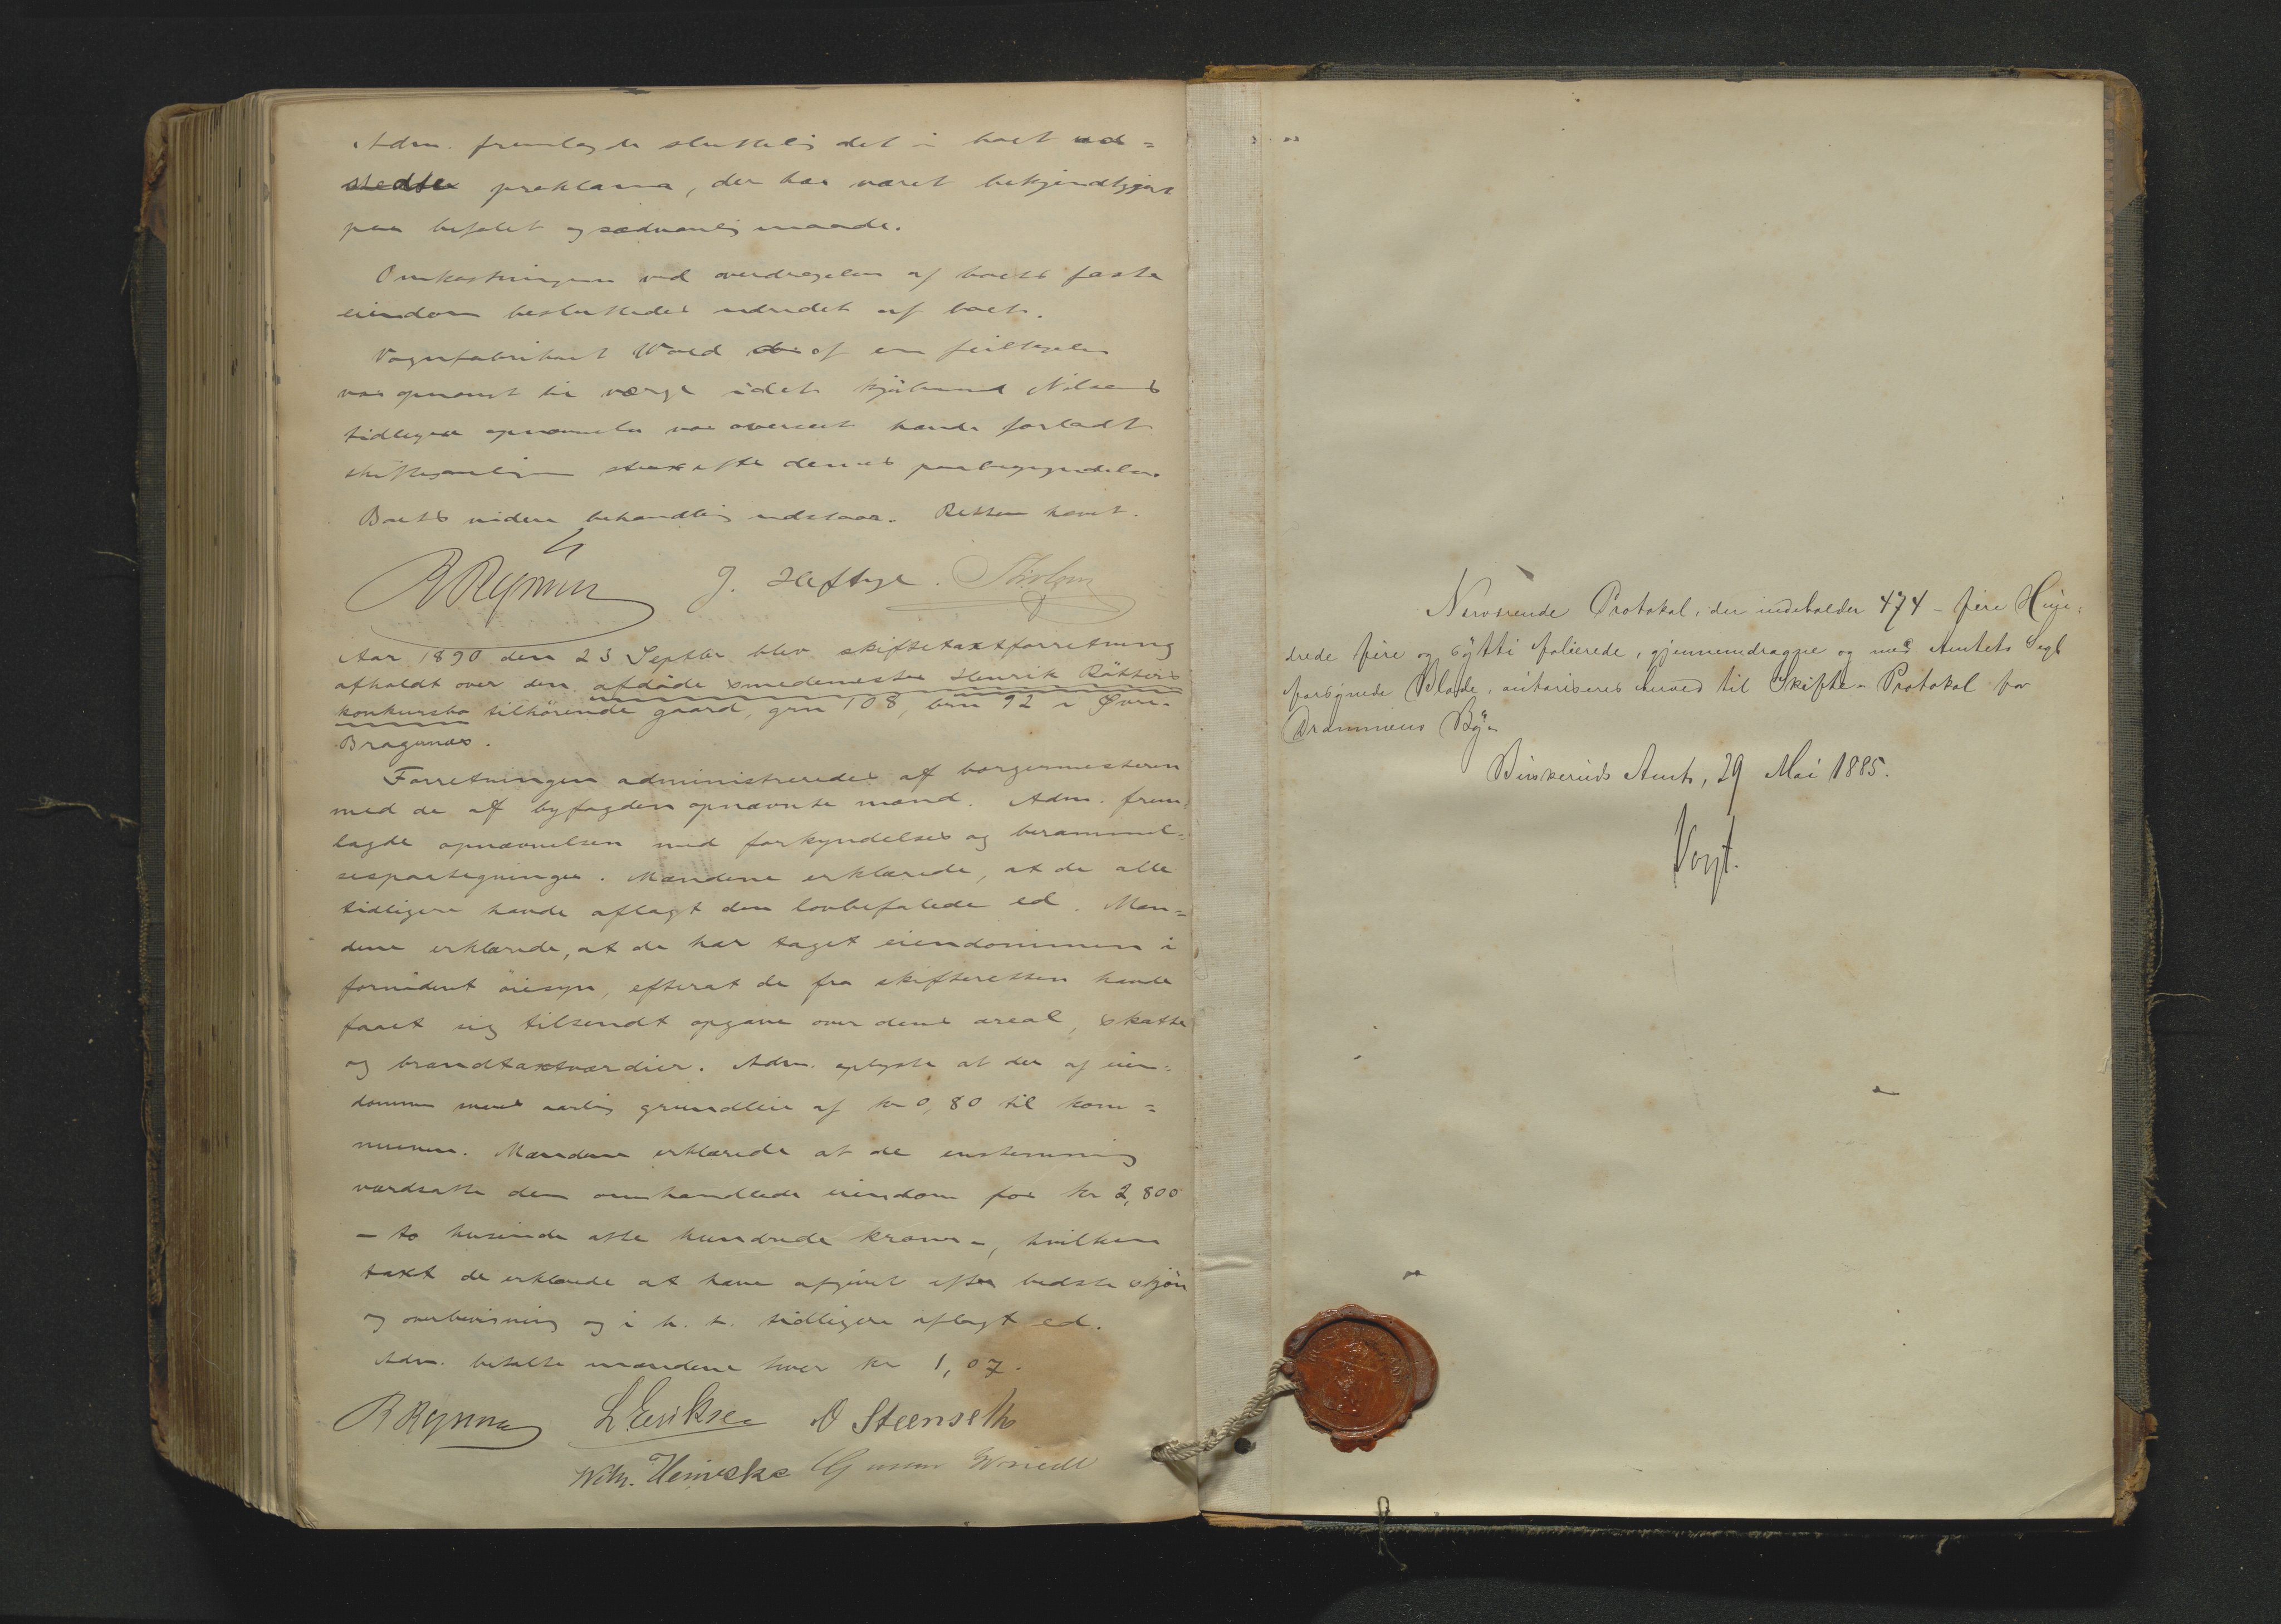 Adm. fremlagde sluttelig det i boet ud=
stedte proklama, der har været bekjendtgjort
paa befalet og sædvanlig maade.
Omkostningerne ved overdragelsen af boets faste
eiendom besluttedes udredet af boet.
Vognfabrikant Wold af en feiltagelse
var opnævnt til værge idet Nilsens
tidligere opnævnelse var overseet havde forladt
skiftesamlingen strax efter dennes paabegyndelse.
Boets videre behandling udstaar. Retten hævet.
J. Heftye.
Aar 1890 den 23 Septbr blev skiftetaxtforretning
afholdt over den afdøde smedemester Henrik Røtters
konkursbo tilhørende gaard, grn 108, brn 92 i Øvre-
Bragernæs.
Forretningen administreredes af borgermesteren
med de af byfogden opnævnte mænd. Adm. frem-
lagde opnævnelsen med forkyndelses og berammel-
sespaategninger. Mændene erklærede, at de alle
tidligere havde aflagt den lovbefalede ed. Mæn=
dene erklærede, at de har taget eiendommen i
fornødent øiesyn, efterat de fra skifteretten havde
faaet sig tilsendt opgave over dens areal, skatte
og brandtaxtværdier. Adm. oplyste at der af eien-
dommen svares aarlig grundleie af kr 0,80 til kom=
munen. Mændene erklærede at de enstemmig
værdsatte den omhandlede eiendom for kr 2,800
– to tusinde otte hundrede kroner –, hvilken
taxt de erklærede at have afgivet efter bedste skjøn
og overbevisning og i h. t. tidligere aflagt ed.
Adm. betalte mændene hver kr 1,07.
L Eriksen O Steenseth
Wilh. Heinecke Gunnar
Nærværende Protokol, der indeholder 474 – fire Hun-
drede fire og sytti folierede, gjennemdragne og med Amtets Segl
forsynede Blade, autoriseres herved til Skifte-Protokol for
Drammens By.
Buskeruds Amt, 29 Mai 1885.
Vogt.